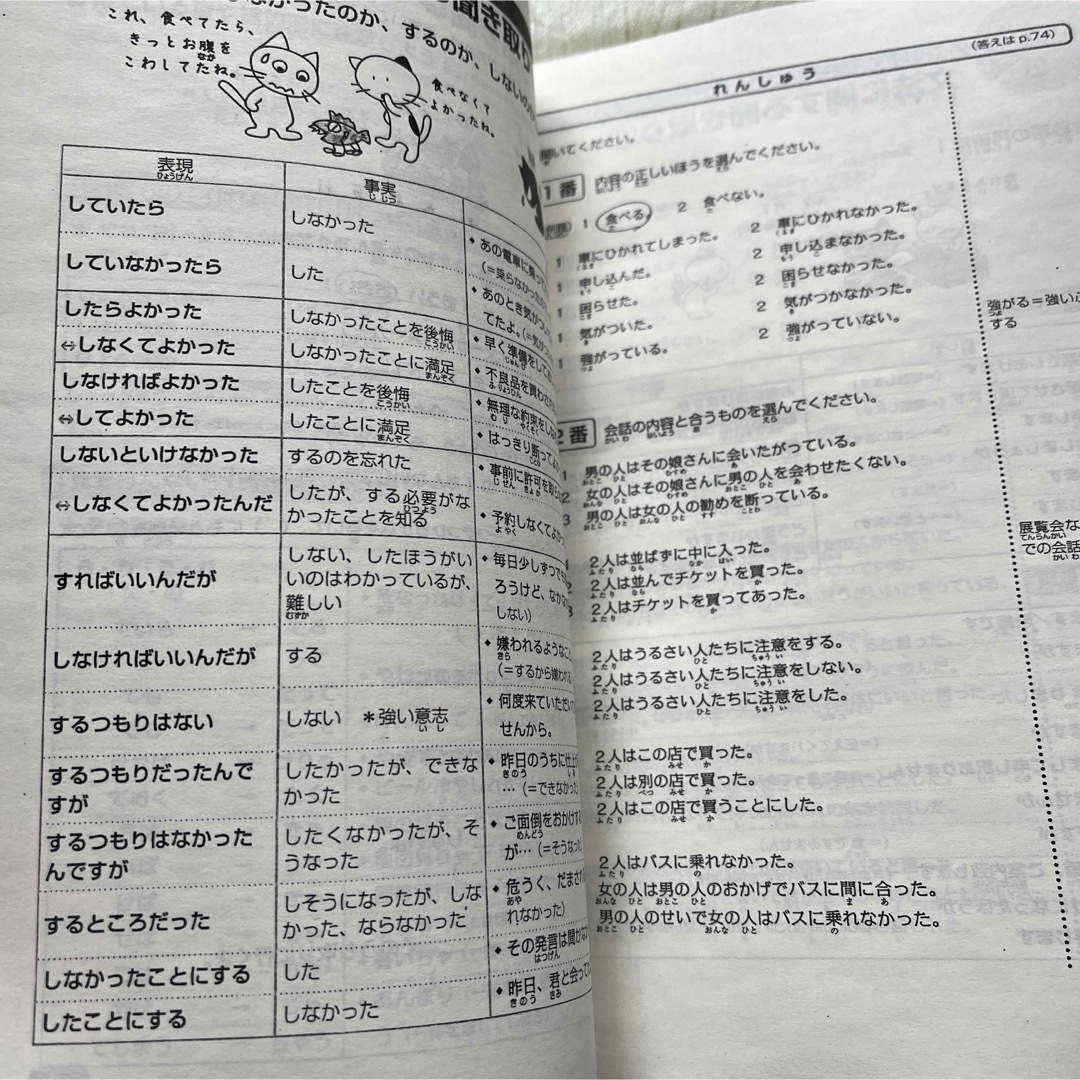 聞き取り
なかったのか、するのか、しないの
これ、食べてたら、
きっとお腹を
こわしてたね。
食べなくて
よかったね。
表現 事実
していたら しなかった ◆あの電車に乗っ
(=乗らなかった
していなかったら した ◆あのとき気がつい
てたよ。(=気が
したらよかった しなかったことを後悔 ◆早く準備をして
⇔しなくてよかった しなかったことに満足 ◆不良品を買わされ
しなければよかった したことを後悔 ◆無理な約束をし
⇔してよかった したことに満足 ◆はっきり断って
しないといけなかった するのを忘れた ◆事前に許可を取
⇔しなくてよかったんだ したが、する必要がな
かったことを知る ◆予約しなくてよか
すればいいんだが しない、したほうがい
いのはわかっているが、
難しい ◆毎日少しずつでも
ろうけど、なかな
しない)
しなければいいんだが する ◆嫌われるようなこと
(=するから嫌われる
するつもりはない しない *強い意志 ◆何度来ていただい
せんから。
するつもりだったんで
すが したかったが、できな
かった ◆昨日のうちに仕上
…(=できなかった
するつもりはなかった
んですが したくなかったが、そ
うなった ◆ご面倒をおかけする
が…(=そうなった
するところだった しそうになったが、しな
かった、ならなかった ◆危うく、だまされ
れなかった)
しなかったことにする した ◆その発言は聞かな
したことにする しなかった ◆昨日、君と会って
(答えはp.74)
れんしゅう
聞いてください。
1番 内容の正しいほうを選んでください。
1 食べる。 2 食べない。
1 車にひかれてしまった。 2 車にひかれなかった。
1 申し込んだ。 2 申し込まなかった。
1 困らせた。 2 困らせなかった。
1 気がついた。 2 気がつかなかった。
1 強がっている。 2 強がっていない。
強がる=強いふ
する
2番 会話の内容と合うものを選んでください。
1 男の人はその娘さんに会いたがっている。
2 女の人はその娘さんに男の人を会わせたくない。
3 男の人は女の人の勧めを断っている。
2人は並ばずに中に入った。
2人は並んでチケットを買った。
2人はチケットを買ってあった。
展覧会な
での会話
2人はうるさい人たちに注意をする。
2人はうるさい人たちに注意をしない。
2人はうるさい人たちに注意をした。
2人はこの店で買った。
2人は別の店で買った。
2人はこの店で買うことにした。
2人はバスに乗れなかった。
女の人は男の人のおかげでバスに間に合った。
男の人のせいで女の人はバスに乗れなかった。